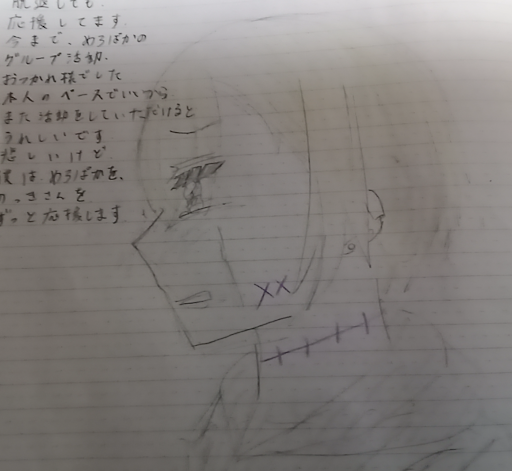 脱退しても
応援してます
今まで、めろぱかの
グループ活動、
おつかれ様でした
本人のペースでいいから
また活動をしていただけると
うれしいです
悲しいけど
僕はめろぱかを、
っきさんを
ずっと応援します
XX